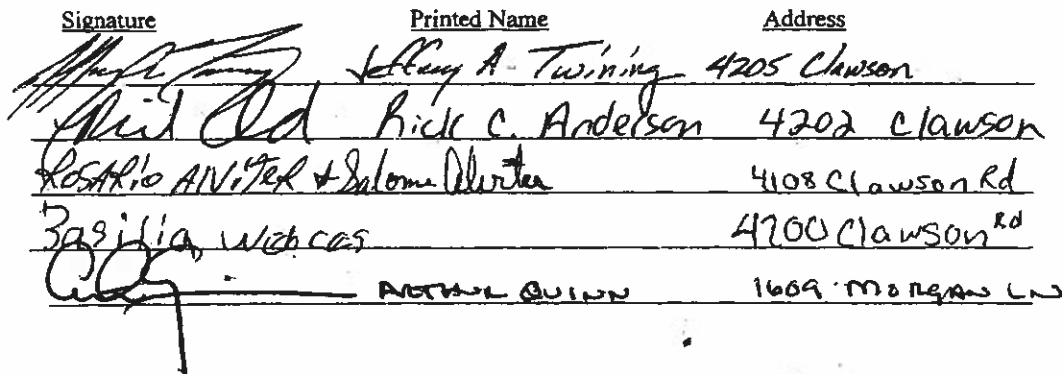 Signature Printed Name Address
Jeffrey A. Twining 4205 Clawson
Rick C. Anderson 4202 Clawson
Rosario & Salome 4108 Clawson Rd
4200 Clawson Rd
ARTHUR QUINN 1609 MORGAN LN